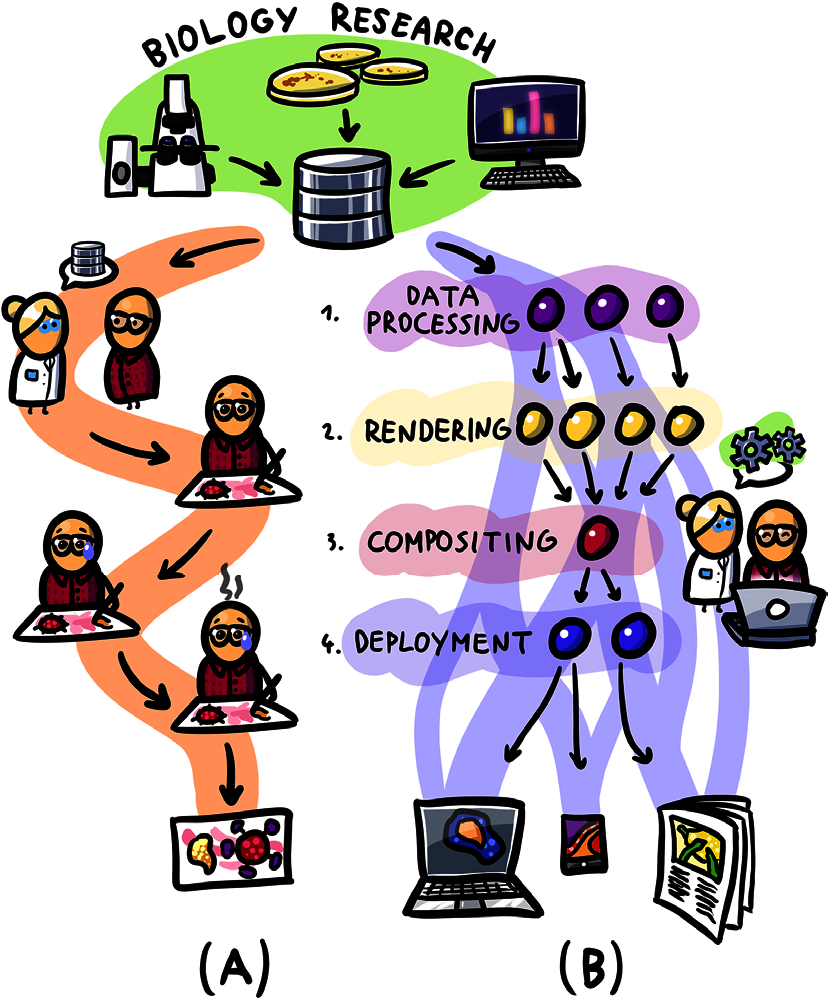 BIOLOGY RESEARCH
1. DATA PROCESSING
2. RENDERING
3. COMPOSITING
4. DEPLOYMENT
(A) (B)